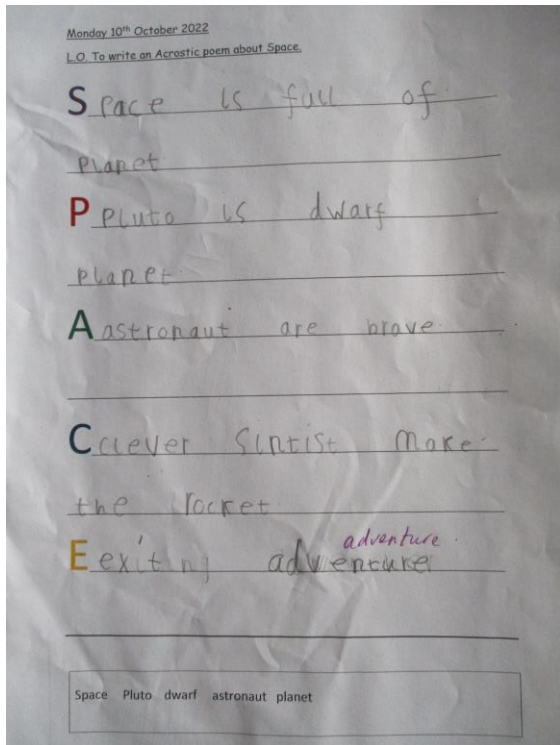 Monday 10th October 2022
L.O. To write an Acrostic poem about Space.
Space is full of
planet
P Pluto is dwarf
planet
A astronaut are brave.
C clever sintist make
the rocket
adventure.
E exiting adventure
Space Pluto dwarf astronaut planet